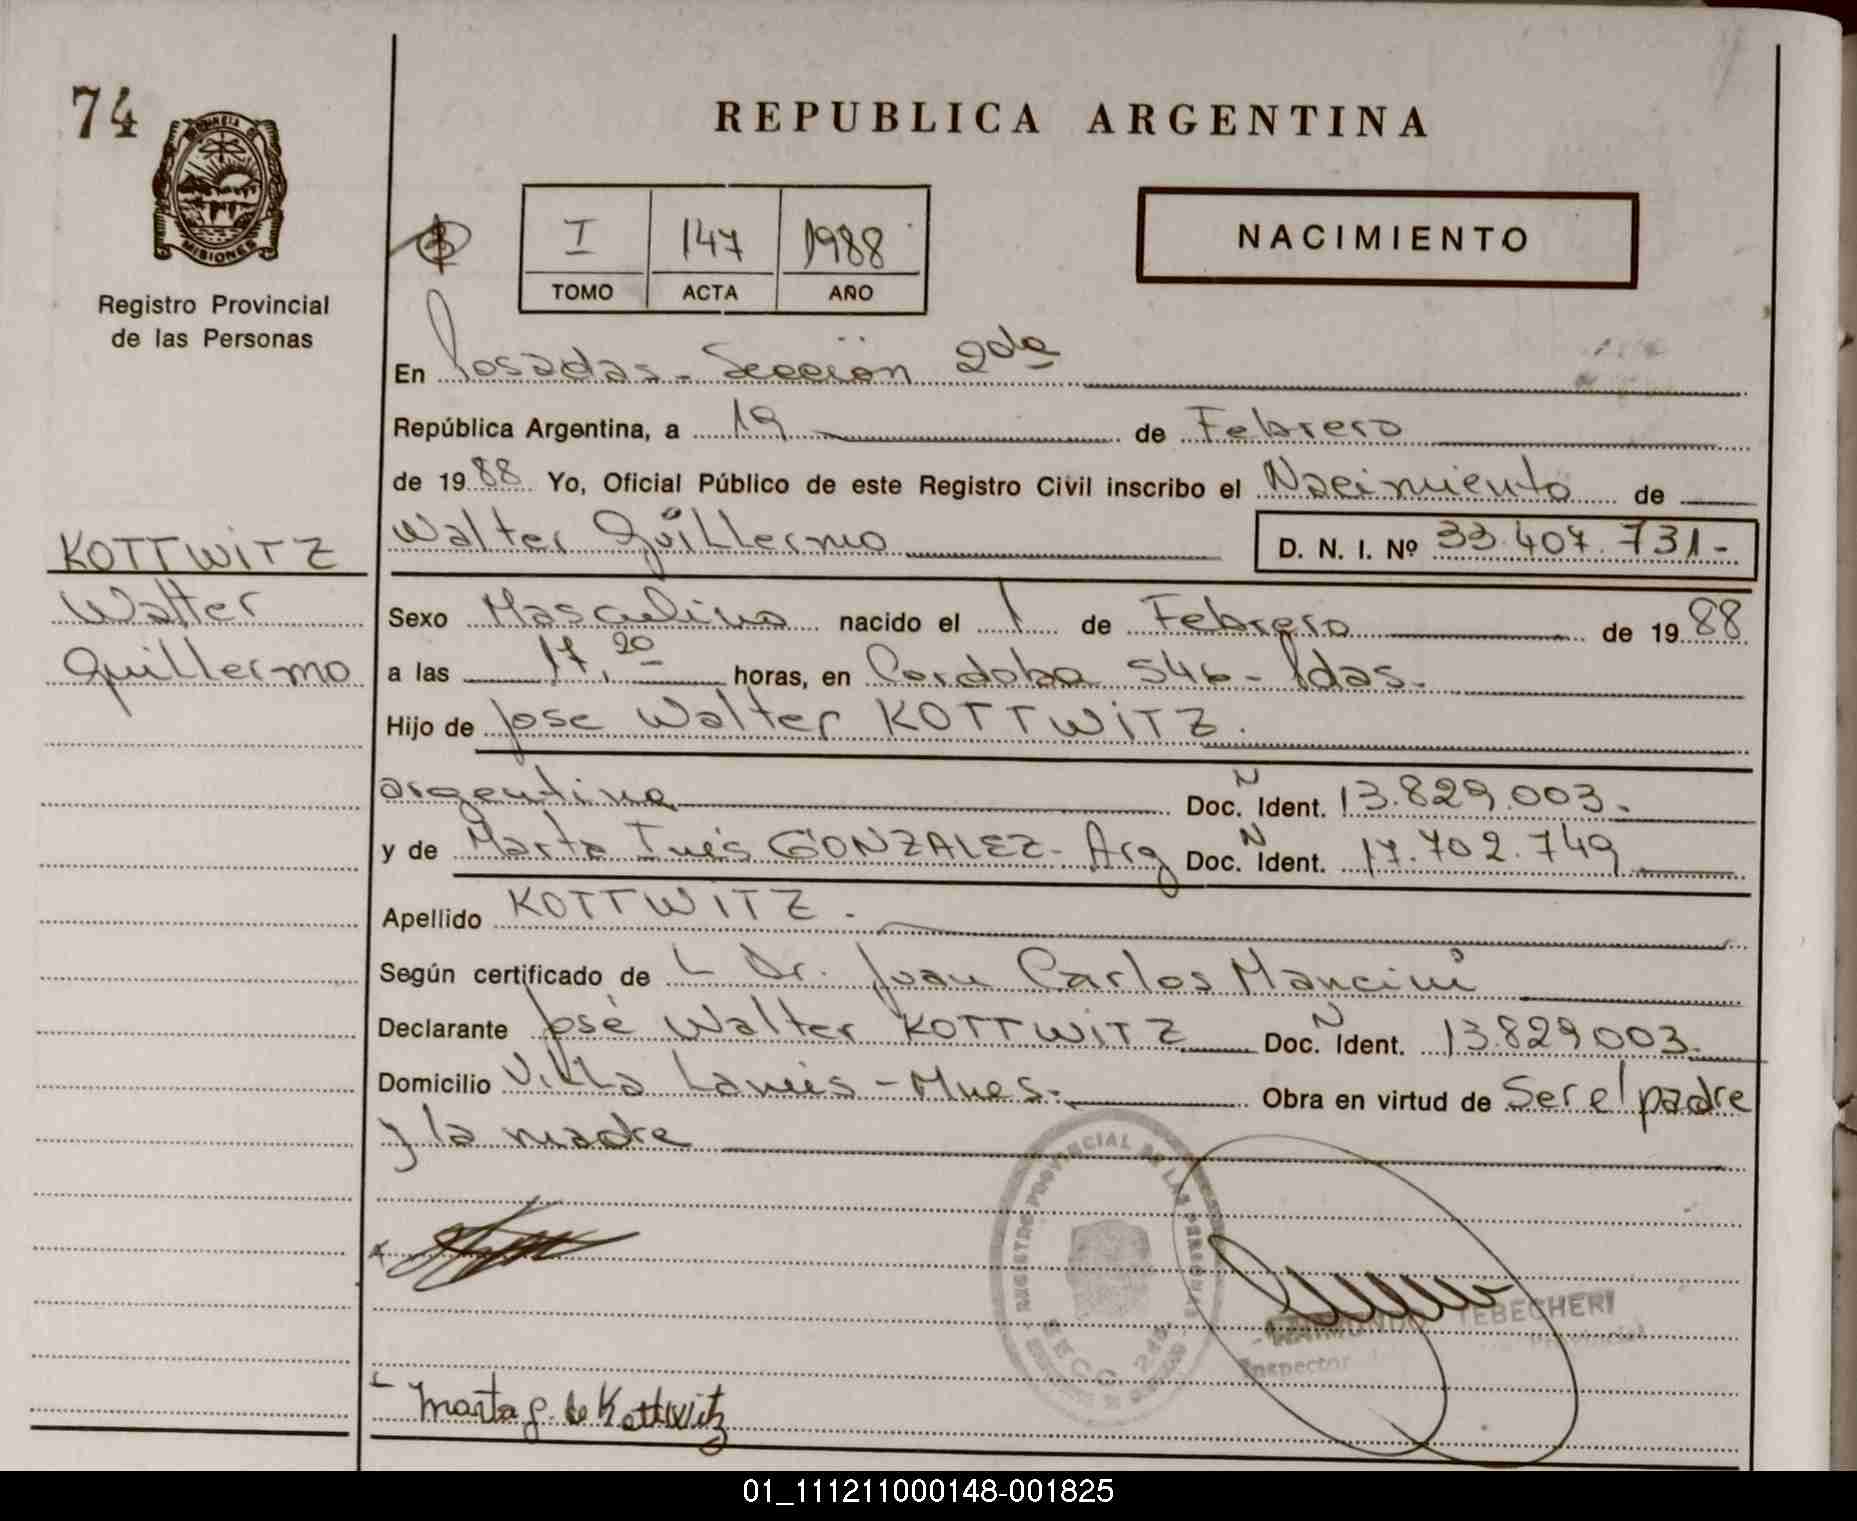 74
MISIONES
Registro Provincial
de las Personas
REPUBLICA ARGENTINA
I 147 1988
TOMO ACTA AÑO
NACIMIENTO
En Posadas - Sección 2da
República Argentina, a 19 de Febrero
de 1988 Yo, Oficial Público de este Registro Civil inscribo el Nacimiento de
Walter Guillermo D. N. I. Nº 33.407.731-
KOTTWITZ
Walter
Guillermo
Sexo Masculino nacido el 1 de Febrero de 1988
a las 17,20 horas, en Cordoba 546 - Pdas.
Hijo de Jose Walter KOTTWITZ.
argentina Doc. N Ident. 13.829.003.
y de Marta Inés GONZALEZ - Arg Doc. N Ident. 17.702.749
Apellido KOTTWITZ.
Según certificado de L Dr. Juan Carlos Mancini
Declarante José Walter KOTTWITZ Doc. N Ident. 13.829003.
Domicilio Villa Lanús - Mnes. Obra en virtud de Ser el padre
y la madre
REGISTRO PROVINCIAL DE LAS PERSONAS
SECC. 2da.
RAIMUNDO TEBECHERI
Inspector Provincial
Marta G. de Kottwitz
01_111211000148-001825